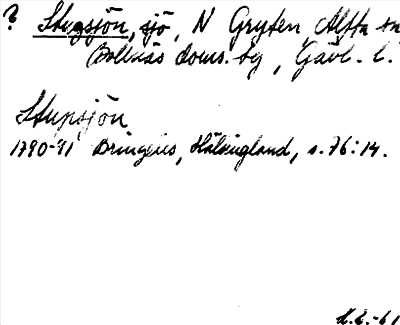 ? Stugsjön, sjö, N Gryten, Alfta sn
Bollnäs doms. sg, Gävl. l.
Stupsjön
1790-91 Bringéus, Hälsingland, s. 76:14.